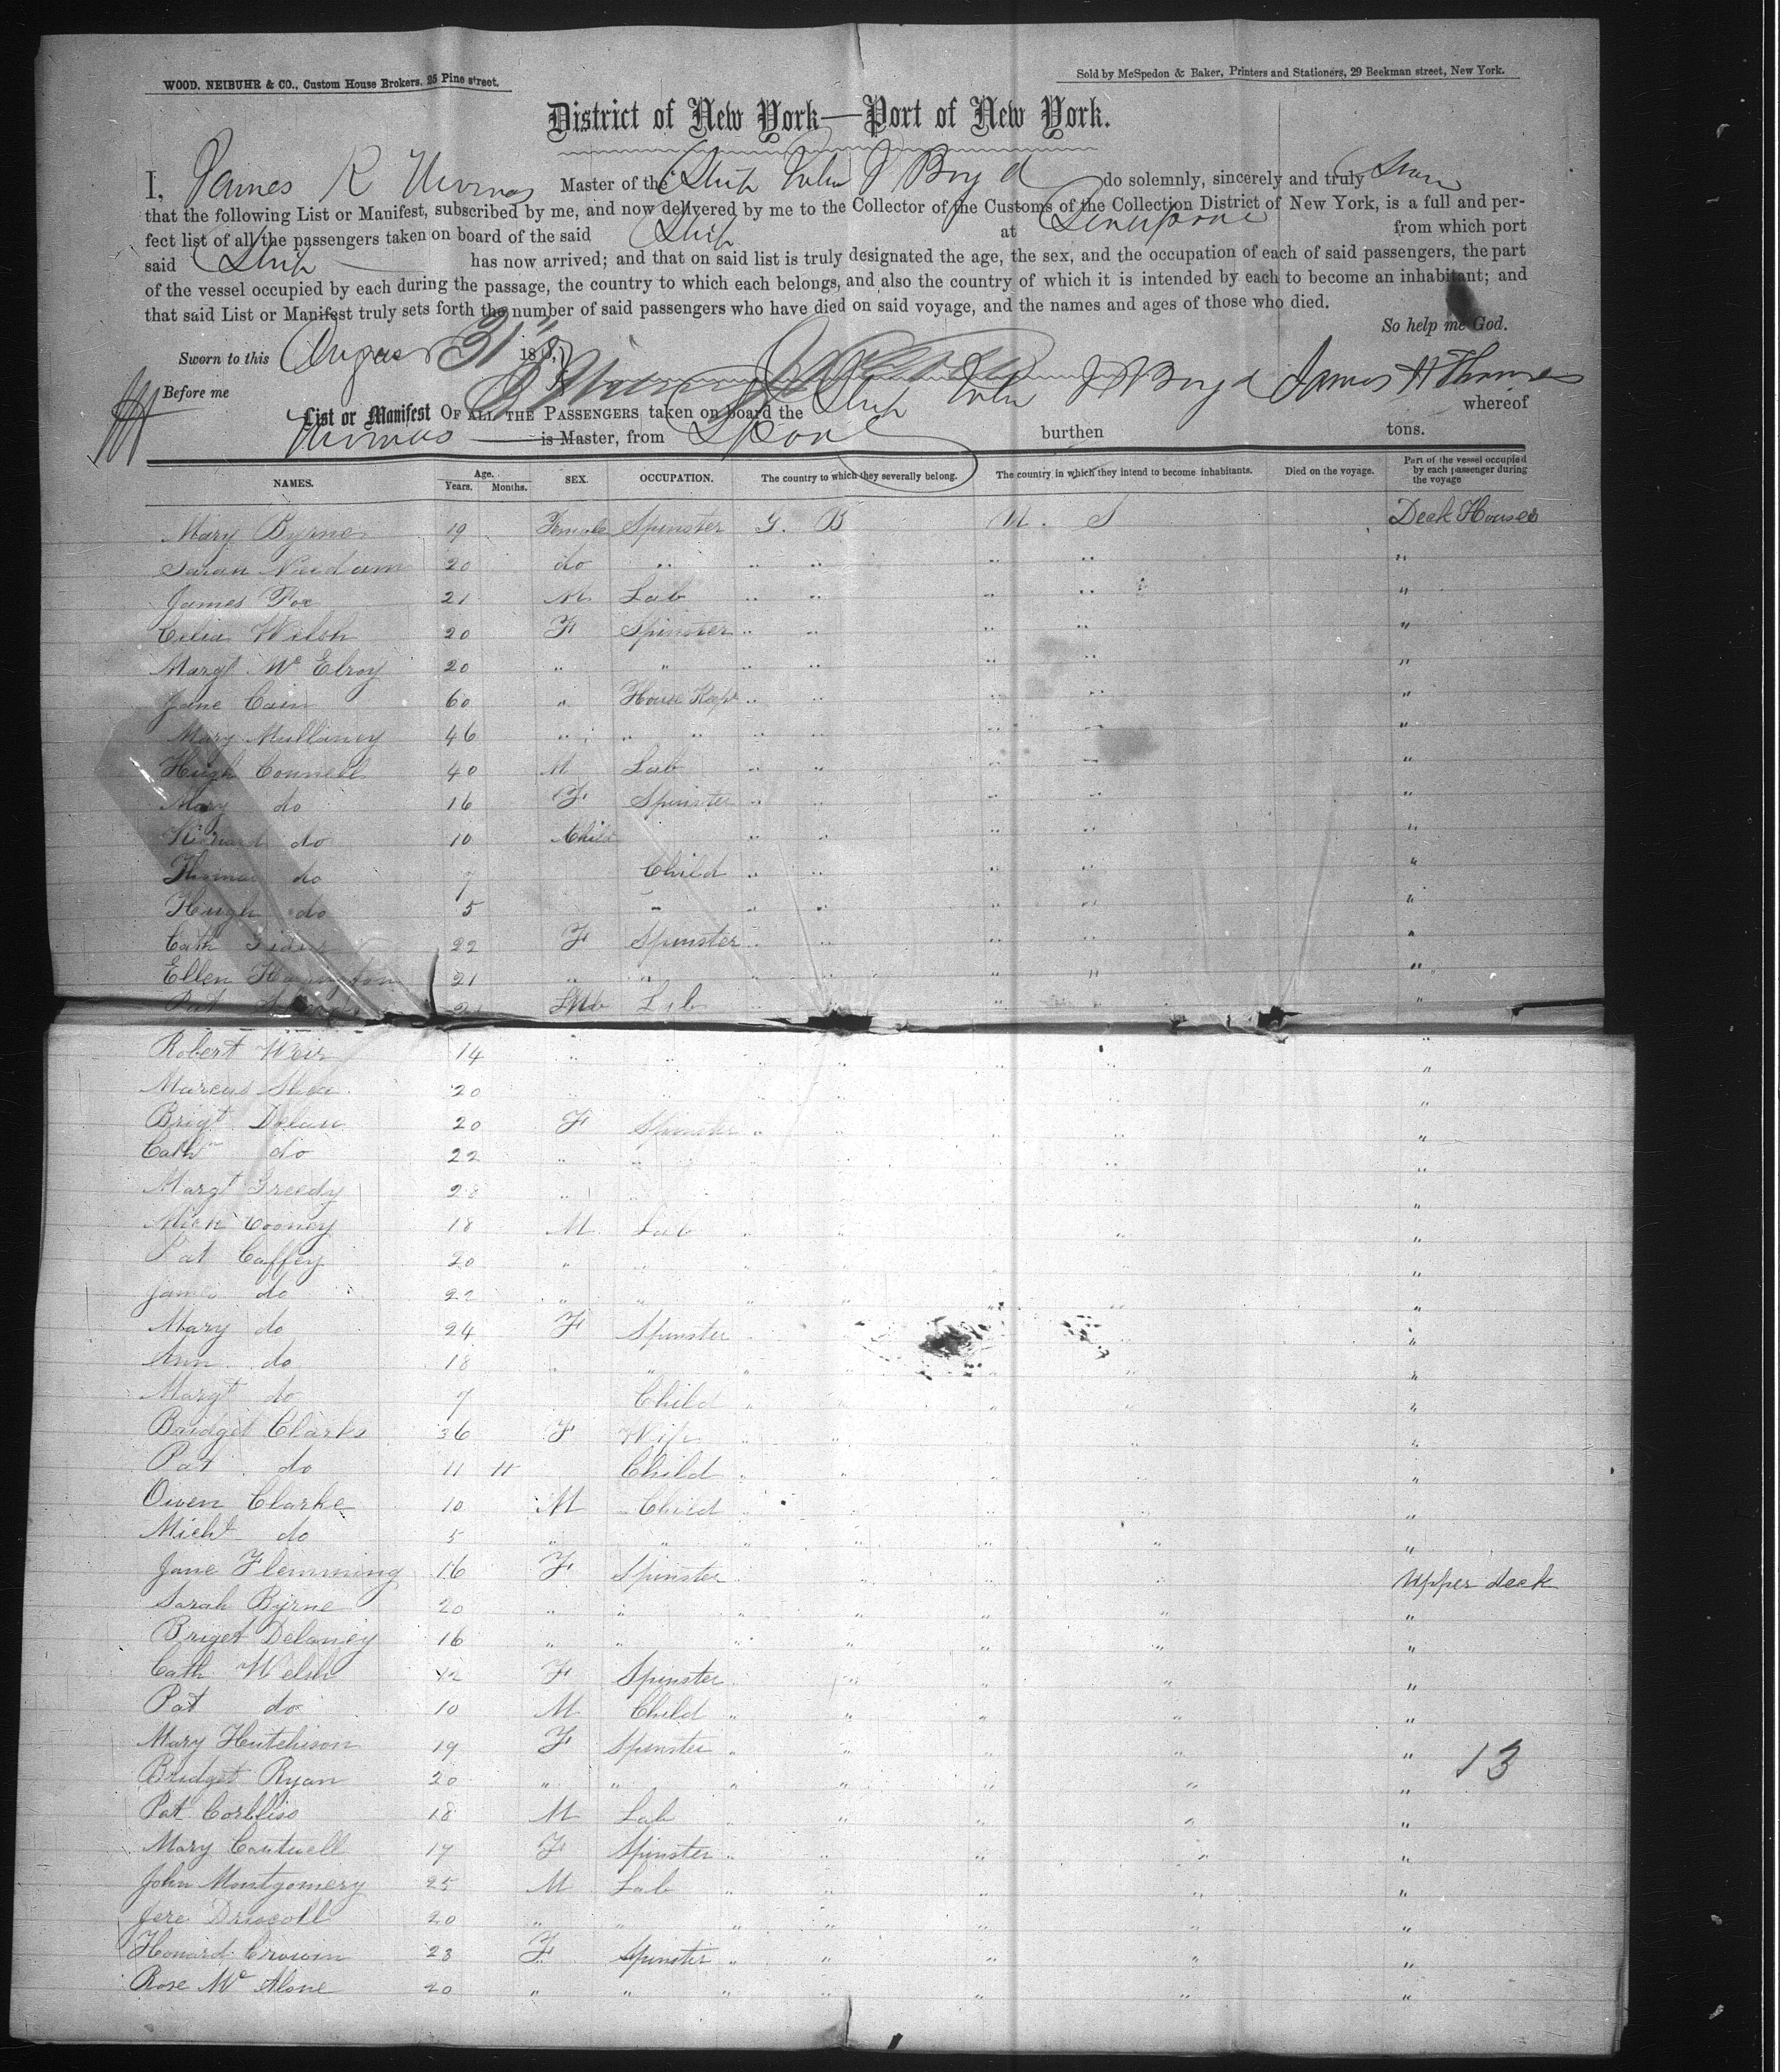 WOOD, NEIBUHR & CO., Custom House Brokers, 25 Pine street.
Sold by McSpedon & Baker, Printers and Stationers, 29 Beekman street, New York.
District of New York—Port of New York.
I, James R Thomas Master of the Ship John J Boyd do solemnly, sincerely and truly Swear
that the following List or Manifest, subscribed by me, and now delivered by me to the Collector of the Customs of the Collection District of New York, is a full and per-
fect list of all the passengers taken on board of the said Ship at Liverpool from which port
said Ship has now arrived; and that on said list is truly designated the age, the sex, and the occupation of each of said passengers, the part
of the vessel occupied by each during the passage, the country to which each belongs, and also the country of which it is intended by each to become an inhabitant; and
that said List or Manifest truly sets forth the number of said passengers who have died on said voyage, and the names and ages of those who died.
So help me God.
Sworn to this August 31 18
Before me James H Thomas
List or Manifest OF ALL THE PASSENGERS taken on board the Ship John J Boyd whereof
Thomas is Master, from LPool burthen tons.
NAMES. Age. Years. Months. SEX. OCCUPATION. The country to which they severally belong. The country in which they intend to become inhabitants. Died on the voyage. Part of the vessel occupied by each passenger during the voyage
Mary Byrne 19 Female Spinster G. B U. S Deck Houses
Sarah Needam 20 do " " " " " "
James Fox 21 M Lab " " " " "
Celia Welsh 20 F Spinster " " " " "
Margt Mc Elroy 20 " " " " " " "
Jane Cain 60 " House Kepr " " " " "
Mary Mullaney 46 " " " " " " " "
Hugh Connell 40 M Lab " " " " "
Mary do 16 F Spinster " " " " "
Richard do 10 Child " " " " "
Thomas do 7 Child " " " " "
Hugh do 5 - " " " " "
Cath 22 F Spinster " " " " "
Ellen Harrington 21 " " " " " " "
Pat Lab " " " "
Robert Weir 14 " " " " " " "
Marcus Shea 20 " " " " " "
Brigt Dolan 20 F Spinster " " " " "
Cathn do 22 " " " " " "
Margt Greedy 28 " " " "
Mich Cooney 18 M Lab " " " "
Pat Caffey 20 " " " " "
James do 22 " " " " " " "
Mary do 24 F Spinster " " " "
Ann do 18 " " " " " "
Margt do 7 Child " " " " "
Bridget Clarke 36 F Wife " " " " "
Pat do 11 11 Child " " " " "
Owen Clarke 10 M Child " " "
Michl do 5 " " " " " " "
Jane Flemming 16 F Spinster " " " Upper deck
Sarah Byrne 20 " " " " " " "
Briget Delaney 16 " " " " " " "
Cath Welsh 42 F Spinster " " " "
Pat do 10 M Child " " " " "
Mary Hutchison 19 F Spinster " " " " " 13
Bridget Ryan 20 " " " " " " "
Pat Corbliss 18 M Lab " " " " "
Mary Cantwell 17 F Spinster " " " " "
John Montgomery 25 M Lab " " " " "
Jere Driscoll 20 " " " " " " "
Honard Crowin 23 F Spinster " " " " "
Rose Mc Alone 20 " " " " " " "